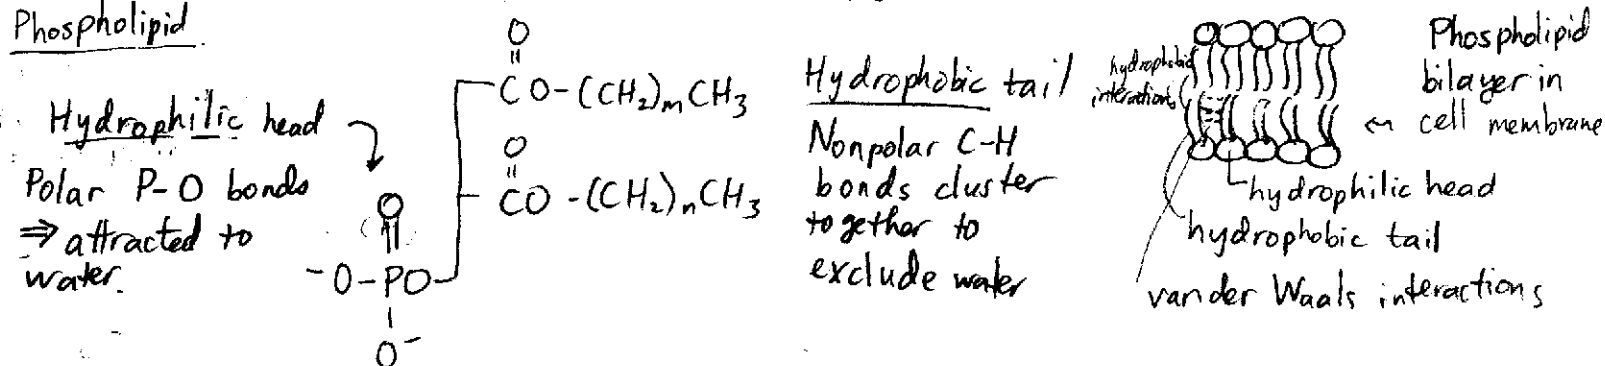 Phospholipid
Hydrophilic head
Polar P-O bonds
⇒ attracted to
water.
O
CO-(CH₂)ₘCH₃
O
CO-(CH₂)ₙCH₃
O
⁻O-PO
O⁻
Hydrophobic tail
Nonpolar C-H
bonds cluster
together to
exclude water
hydrophobic
interactions
Phospholipid
bilayer in
← cell membrane
hydrophilic head
hydrophobic tail
van der Waals interactions